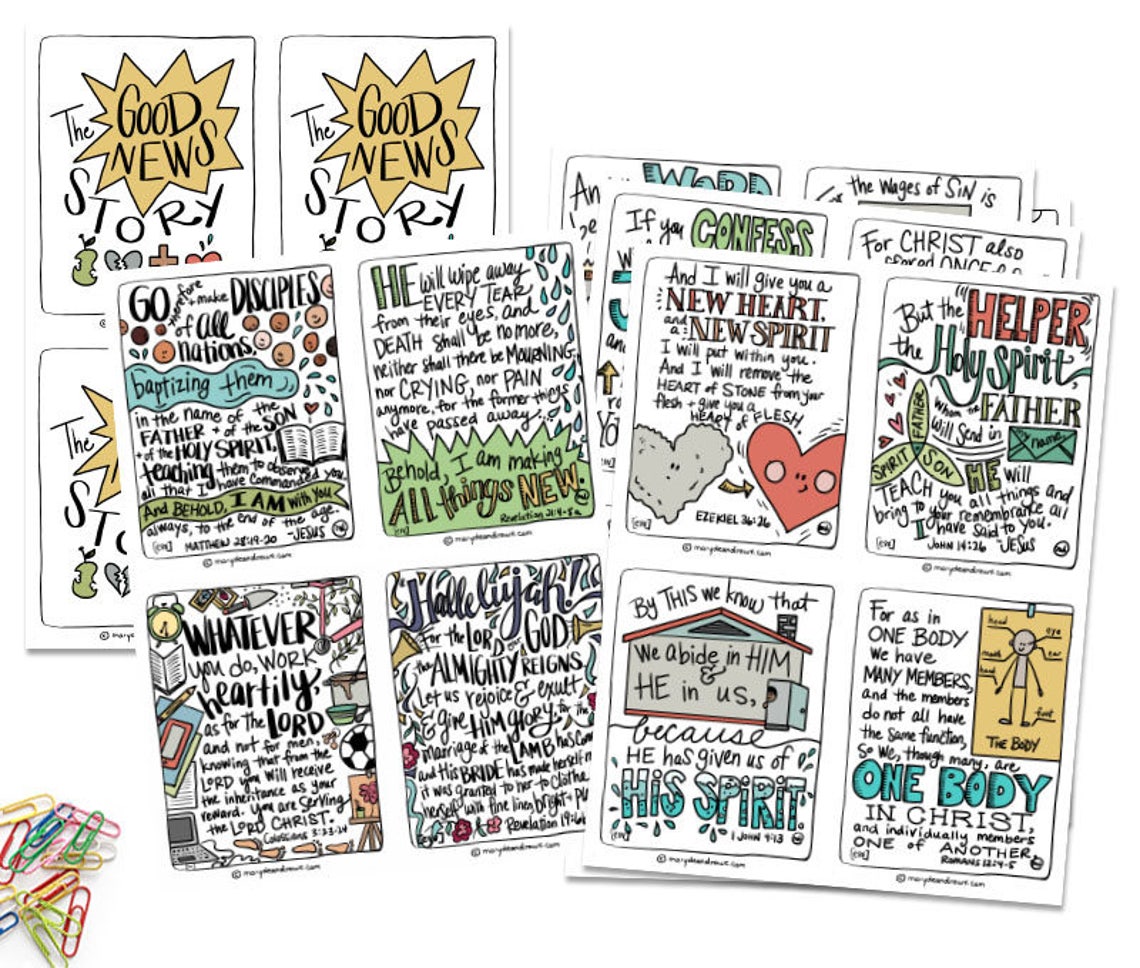 The
GOOD
NEWS
STORY
The
GOOD
NEWS
STORY
The
STORY
©
© marydeandraws.com
GO therefore + make DISCIPLES
of all
nations,
baptizing them
in the name of the
FATHER + of the SON
+ of the HOLY SPIRIT,
teaching them to observe
all that I have commanded you.
And BEHOLD, I AM with you
always, to the end of the age.
-JESUS
MATTHEW 28:19-20
[ESV]
© marydeandraws.com
HE will wipe away
EVERY TEAR
from their eyes, and
DEATH shall be no more,
neither shall there be MOURNING,
nor CRYING, nor PAIN
anymore, for the former things
have passed away...
Behold, I am making
ALL things NEW.
Revelation 21:4-5a
[ESV]
© marydeandraws.com
WHATEVER
you do, WORK
heartily,
as for the LORD
and not for men,
knowing that from the
LORD you will receive
the inheritance as your
reward. You are serving
the LORD CHRIST.
Colossians 3:23-24
© marydeandraws.com
Hallelujah!
For the LORD our GOD
the ALMIGHTY REIGNS.
Let us rejoice & exult
& give HIM GLORY, for the
marriage of the LAMB has com
and His BRIDE has made herself
it was granted to her to clothe
herself with fine linen, bright + pu
Revelation 19:6b
[ESV]
© marydeandraws.com
An
be
WORD
the Wages of SIN is
If you CONFESS
For CHRIST also
suffered ONCE
an
Yo
And I will give you a
NEW HEART,
and a NEW SPIRIT
I will put within you.
And I will remove the
HEART of STONE from your
flesh + give you a
HEART of FLESH.
EZEKIEL 36:26
[ESV]
© marydeandraws.com
But the HELPER,
the Holy Spirit,
whom the FATHER
will send in
my name,
FATHER
SPIRIT
SON
HE will
TEACH you all things and
bring to your remembrance all
I have said to you.
-JESUS
JOHN 14:26
[ESV]
© marydeandraws.com
By THIS we know that
we abide in HIM
&
HE in us,
because
HE has given us of
HIS SPIRIT.
1 JOHN 4:13
[ESV]
© marydeandraws.com
For as in
ONE BODY
we have
MANY MEMBERS,
and the members
do not all have
the same function,
so we, though many, are
ONE BODY
IN CHRIST,
and individually members
ONE of ANOTHER.
ROMANS 12:4-5
[ESV]
head
eye
mouth
ear
hand
foot
THE BODY
© marydeandraws.com